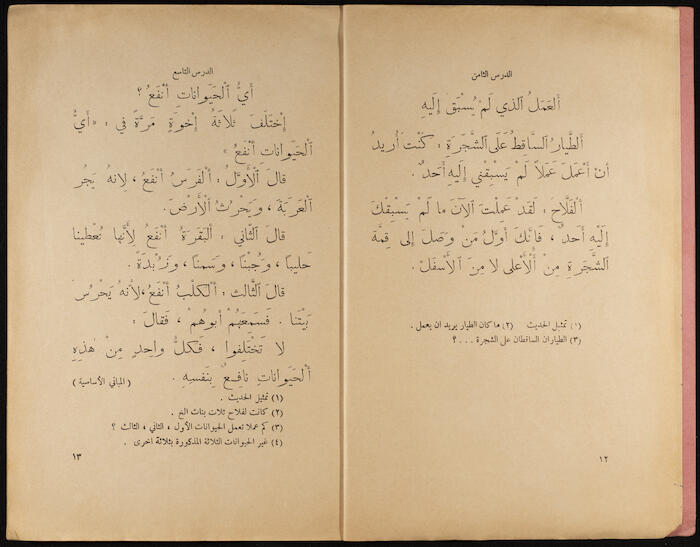 الدرس الثامن
العَمَلُ الَّذي لَمْ يُسْبَقْ إِلَيهِ
الطَّيارُ السَّاقِطُ عَلَى الشَّجَرَةِ : كُنْتُ أُريدُ
أنْ أَعْمَلَ عَمَلاً لَمْ يَسْبِقْني إِلَيهِ أَحَدٌ .
الْفَلَّاح : لَقَدْ عَمِلْتَ الآنَ ما لَمْ يَسْبِقْكَ
إِلَيْهِ أَحَدٌ ، فَإِنَّكَ أوَّلُ مَنْ وَصَلَ إلى قِمَّةِ
الشَّجَرَةِ مِنَ الْأَعْلى لا مِنَ الْأَسْفَل .
(١) تمثيل الحديث (٢) ما كان الطيار يريد ان يعمل .
(٣) الطياران الساقطان على الشجرة . . . ؟
١٢
الدرس التاسع
أَيُّ الْحَيَوانَاتِ أَنْفَعُ ؟
إِخْتَلَفَ ثَلاثَةُ إخْوَةٍ مَرَّةً في : « أَيُّ
الْحَيَوانَاتِ أَنْفَعُ »
قالَ الْأَوَّلُ : أَلْفَرَسُ أَنْفَعُ ، لِانهُ يَجُرُ
الْعَرَبَةَ ، وَيَحْرُثُ الْأَرْضَ .
قالَ الثَّاني : أَلْبَقَرَةُ أَنْفَعُ لِأَنَّها تُعْطينا
حَليباً ، وَجُبْناً ، وَسَمْناً ، وَزُبْدَةً .
قالَ الثَّالث : أَلْكَلْبُ أَنْفَعُ ،لأنهُ يَحْرُسُ
بَيْتَنا . فَسَمِعَهُمْ أَبوهُمْ ، فَقالَ :
لا تَخْتَلِفوا ، فَكلُّ واحِدٍ مِنْ هٰذِهِ
الْحَيَوانَاتِ نافِعٌ بِنَفْسِهِ . ( المباني الأساسية )
(١) تمثيل الحديث .
(٢) كانت لفلاح ثلاث بنات الخ .
(٣) كم عملا تعمل الحيوانات الأول ، الثاني ، الثالث ؟
(٤) غير الحيوانات الثلاثة المذكورة بثلاثة اخرى .
١٣